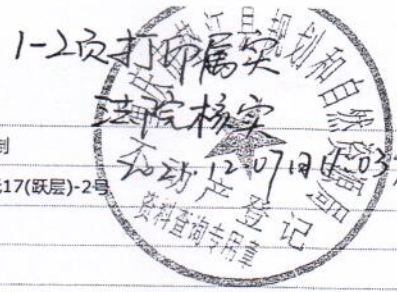 1-2页打印属实
法院核实
2021.12.07
江县规划和自然资源局
不动产登记
资料查询专用章
制
17(跃层)-2号